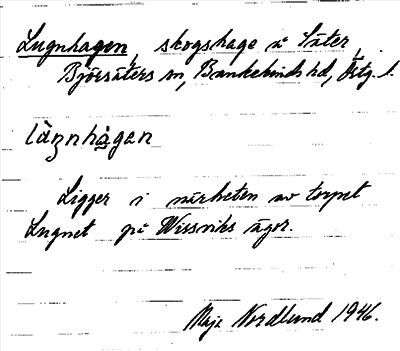 Lugnhagen, skogshage å Säter,
Björsäters sn, Bankekinds hd, Östg. l.
Ligger i närheten av torpet
Lugnet på Wissviks ägor.
Maja Nordlund 1946.